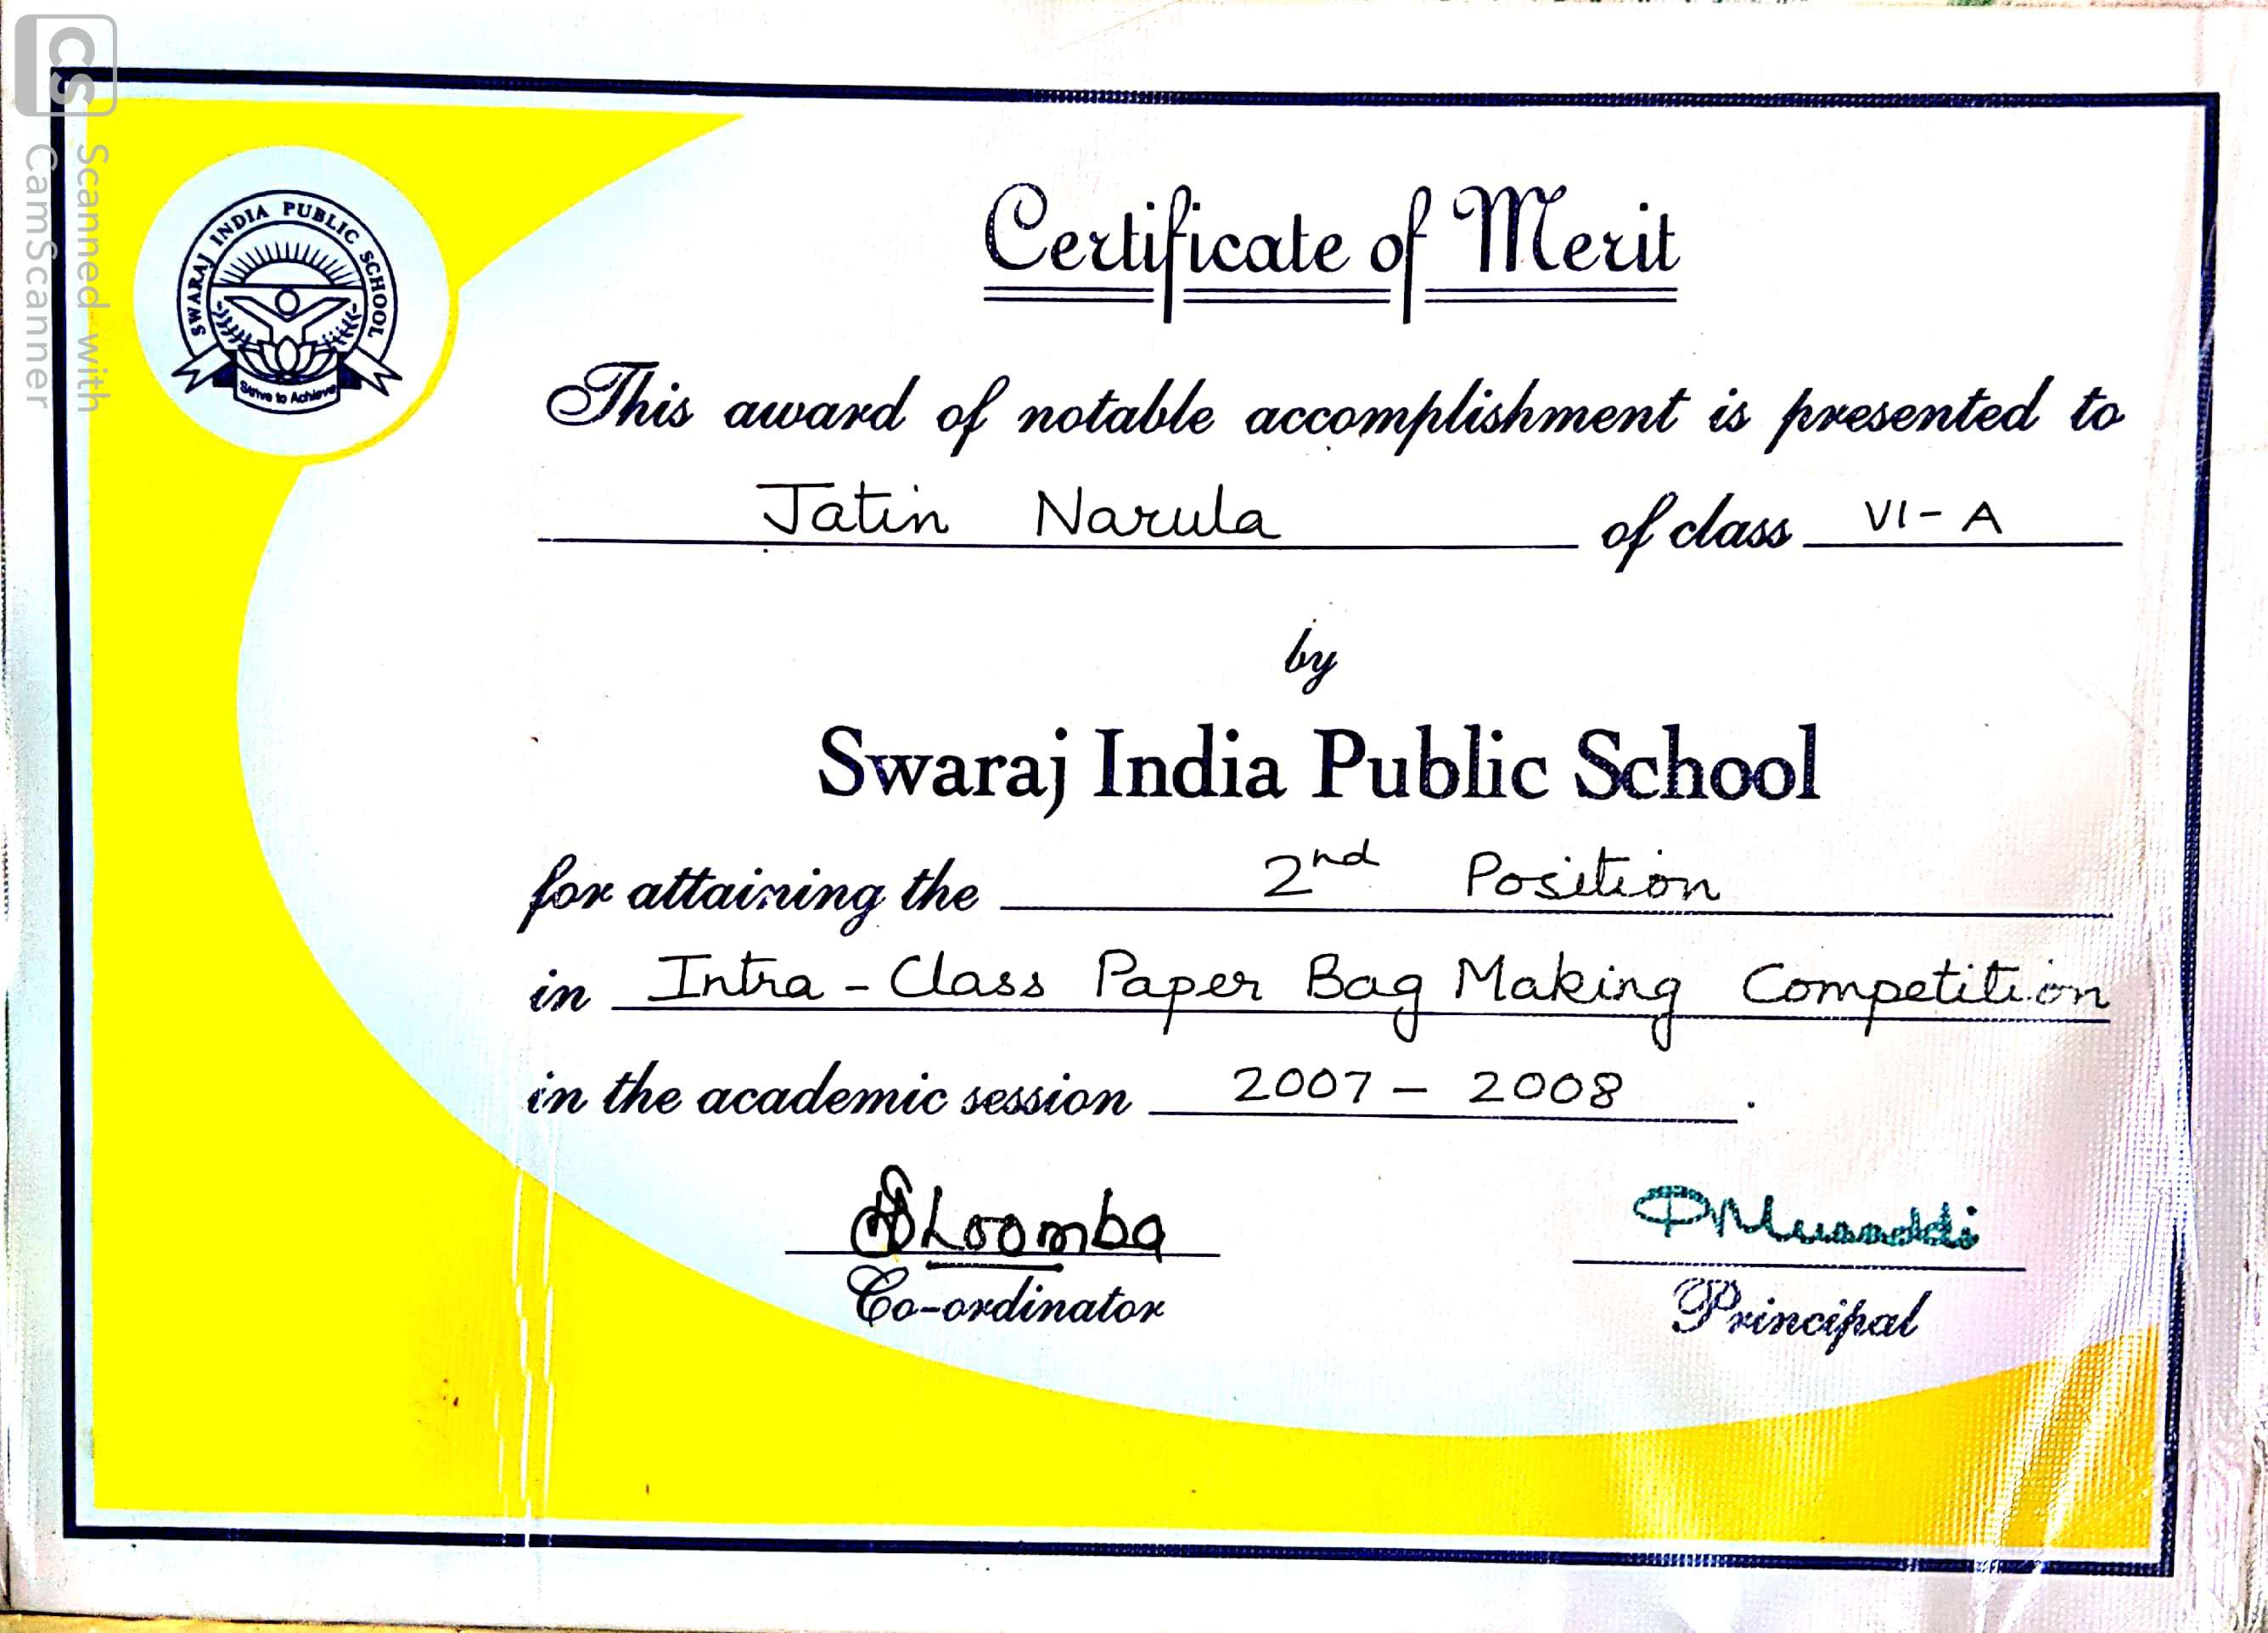 CS Scanned with
CamScanner
SWARAJ INDIA PUBLIC SCHOOL
Strive to Achieve
Certificate of Merit
This award of notable accomplishment is presented to
Jatin Narula of class VI - A
by
Swaraj India Public School
for attaining the 2nd Position
in Intra - Class Paper Bag Making Competition
in the academic session 2007 - 2008.
Loomba
Co-ordinator
Principal